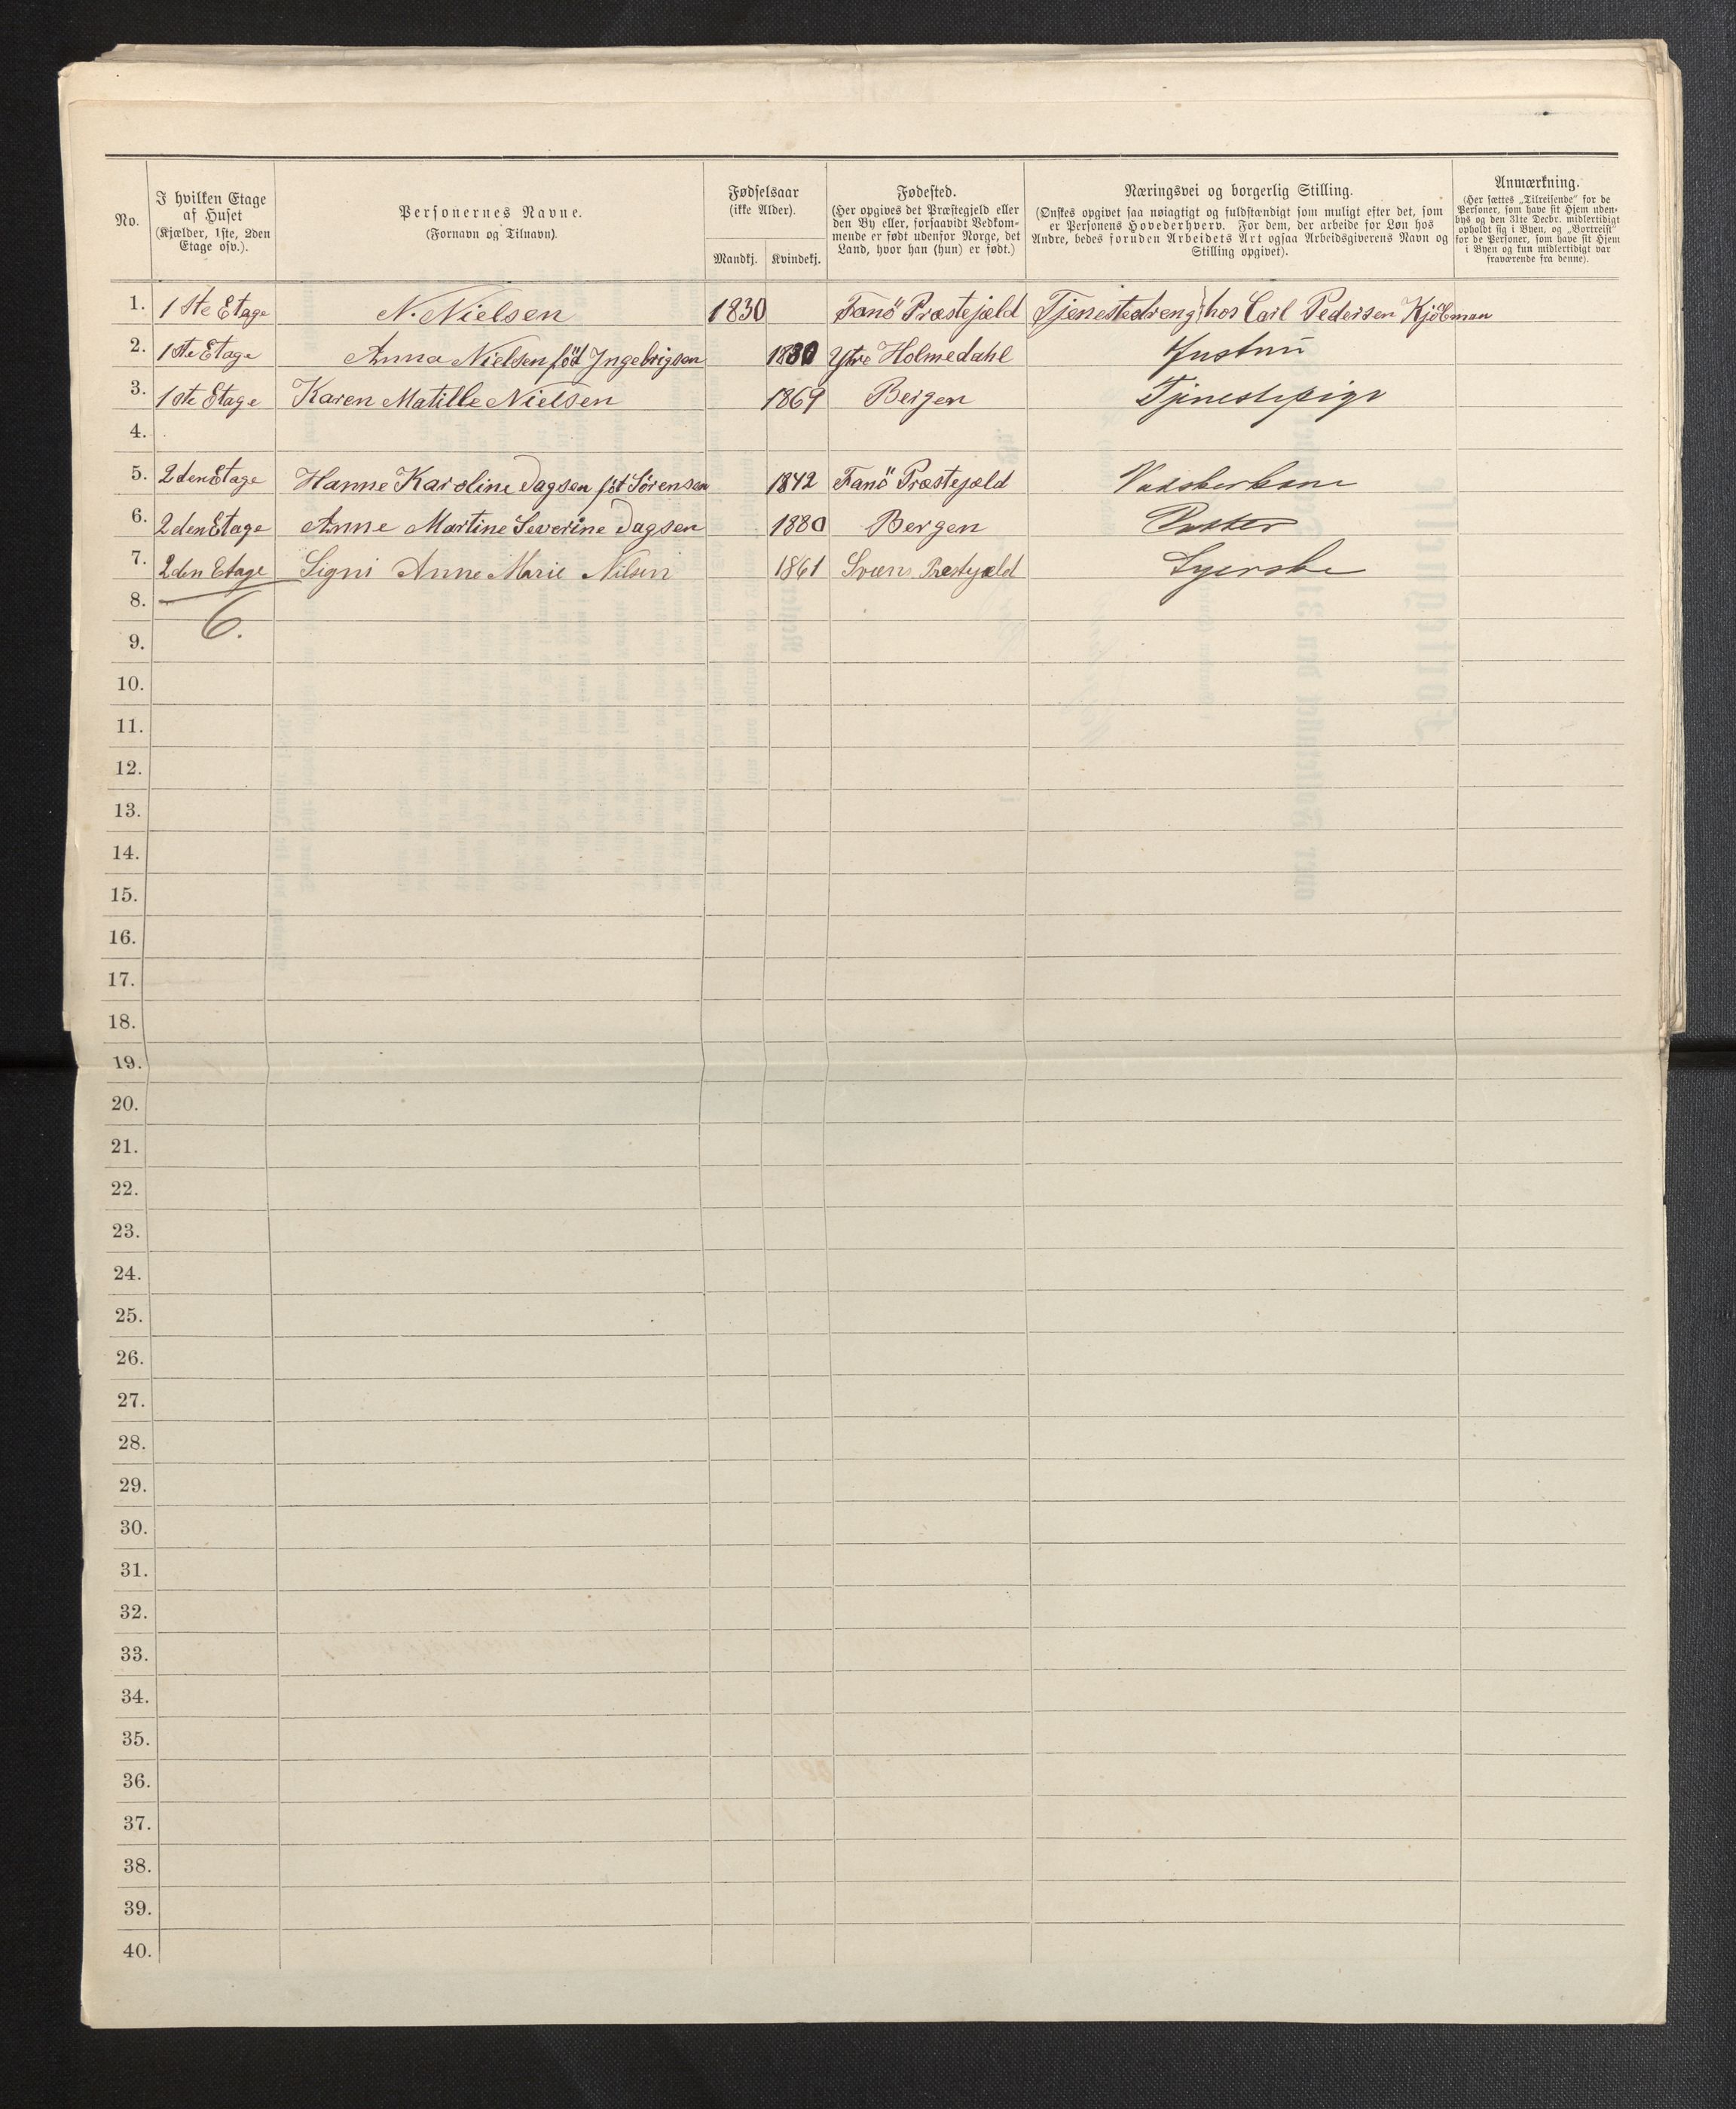 No.
I hvilken Etage af Huset (Kjælder, 1ste, 2den Etage osv.).
Personernes Navne. (Fornavn og Tilnavn).
Fødselsaar (ikke Alder).
Mandkj. Kvindekj.
Fødested. (Her opgives det Præstegjeld eller den By eller, forsaavidt Vedkommende er født udenfor Norge, det Land, hvor han (hun) er født.)
Næringsvei og borgerlig Stilling. (Ønskes opgivet saa nøiagtigt og fuldstændigt som muligt efter det, som er Personens Hovederhverv. For dem, der arbeide for Løn hos Andre, bedes foruden Arbeidets Art ogsaa Arbeidsgiverens Navn og Stilling opgivet).
Anmærkning. (Her sættes „Tilreisende" for de Personer, som have sit Hjem udenbys og den 31te Decbr. midlertidigt opholdt sig i Byen, og „Bortreist" for de Personer, som have sit Hjem i Byen og kun midlertidigt var fraværende fra denne).
1. 1ste Etage N. Nielsen 1830 Fanö Præstejæld Tjenestedreng hos Carl Pedersen Kjöbman
2. 1ste Etage Anna Nielsen föd Ingebrigsen 1830 Ytre Holmedahl Hustru
3. 1ste Etage Karen Matille Nielsen 1869 Bergen Tjenestepige
4.
5. 2denEtage Hanne Karoline Dagsen föt Sörensen 1842 Fanö Præstejæld Vadskerkone
6. 2denEtage Anne Martine Severine Dagsen 1880 Bergen Datter
7. 2den Etage Signi Anne Marie Nilsen 1861 Præstejæld Syerske
8.
6.
9.
10.
11.
12.
13.
14.
15.
16.
17.
18.
19.
20.
21.
22.
23.
24.
25.
26.
27.
28.
29.
30.
31.
32.
33.
34.
35.
36.
37.
38.
39.
40.